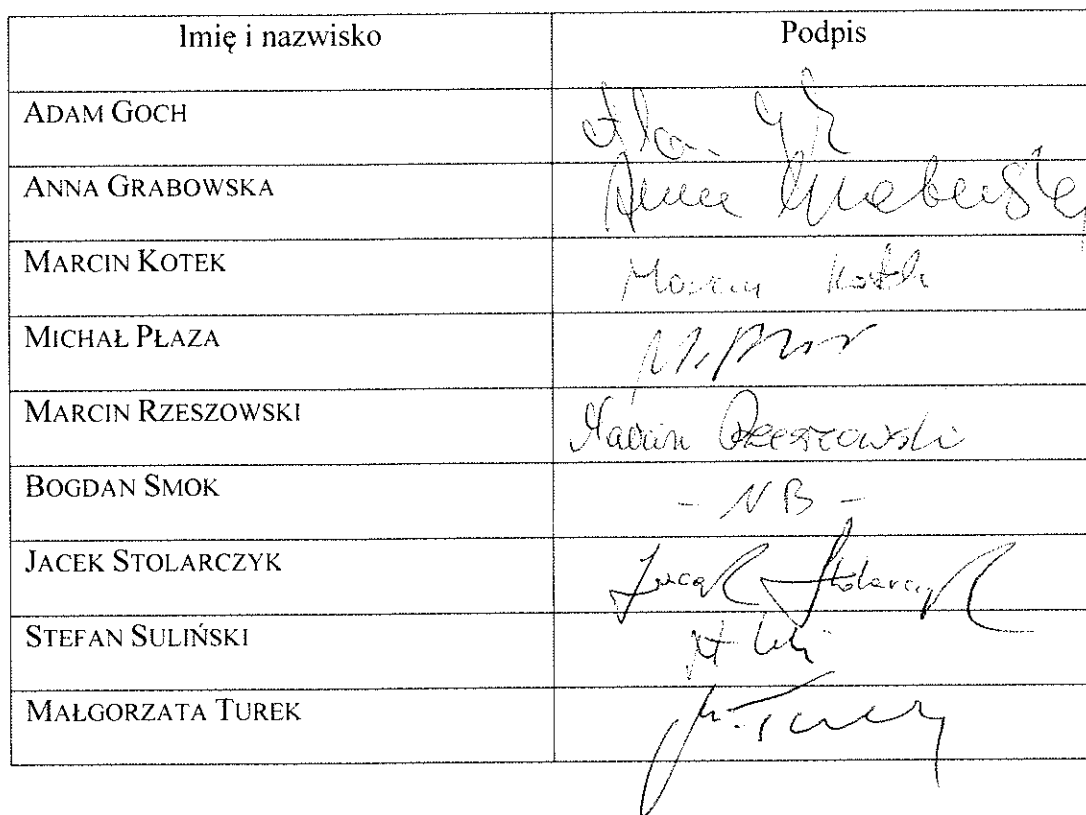 Imię i nazwisko Podpis
ADAM GOCH
ANNA GRABOWSKA Grabowska
MARCIN KOTEK Marcin Kotek
MICHAŁ PŁAZA
MARCIN RZESZOWSKI Marcin Rzeszowski
BOGDAN SMOK - NB -
JACEK STOLARCZYK Jacek Stolarczyk
STEFAN SULIŃSKI
MAŁGORZATA TUREK M. Turek